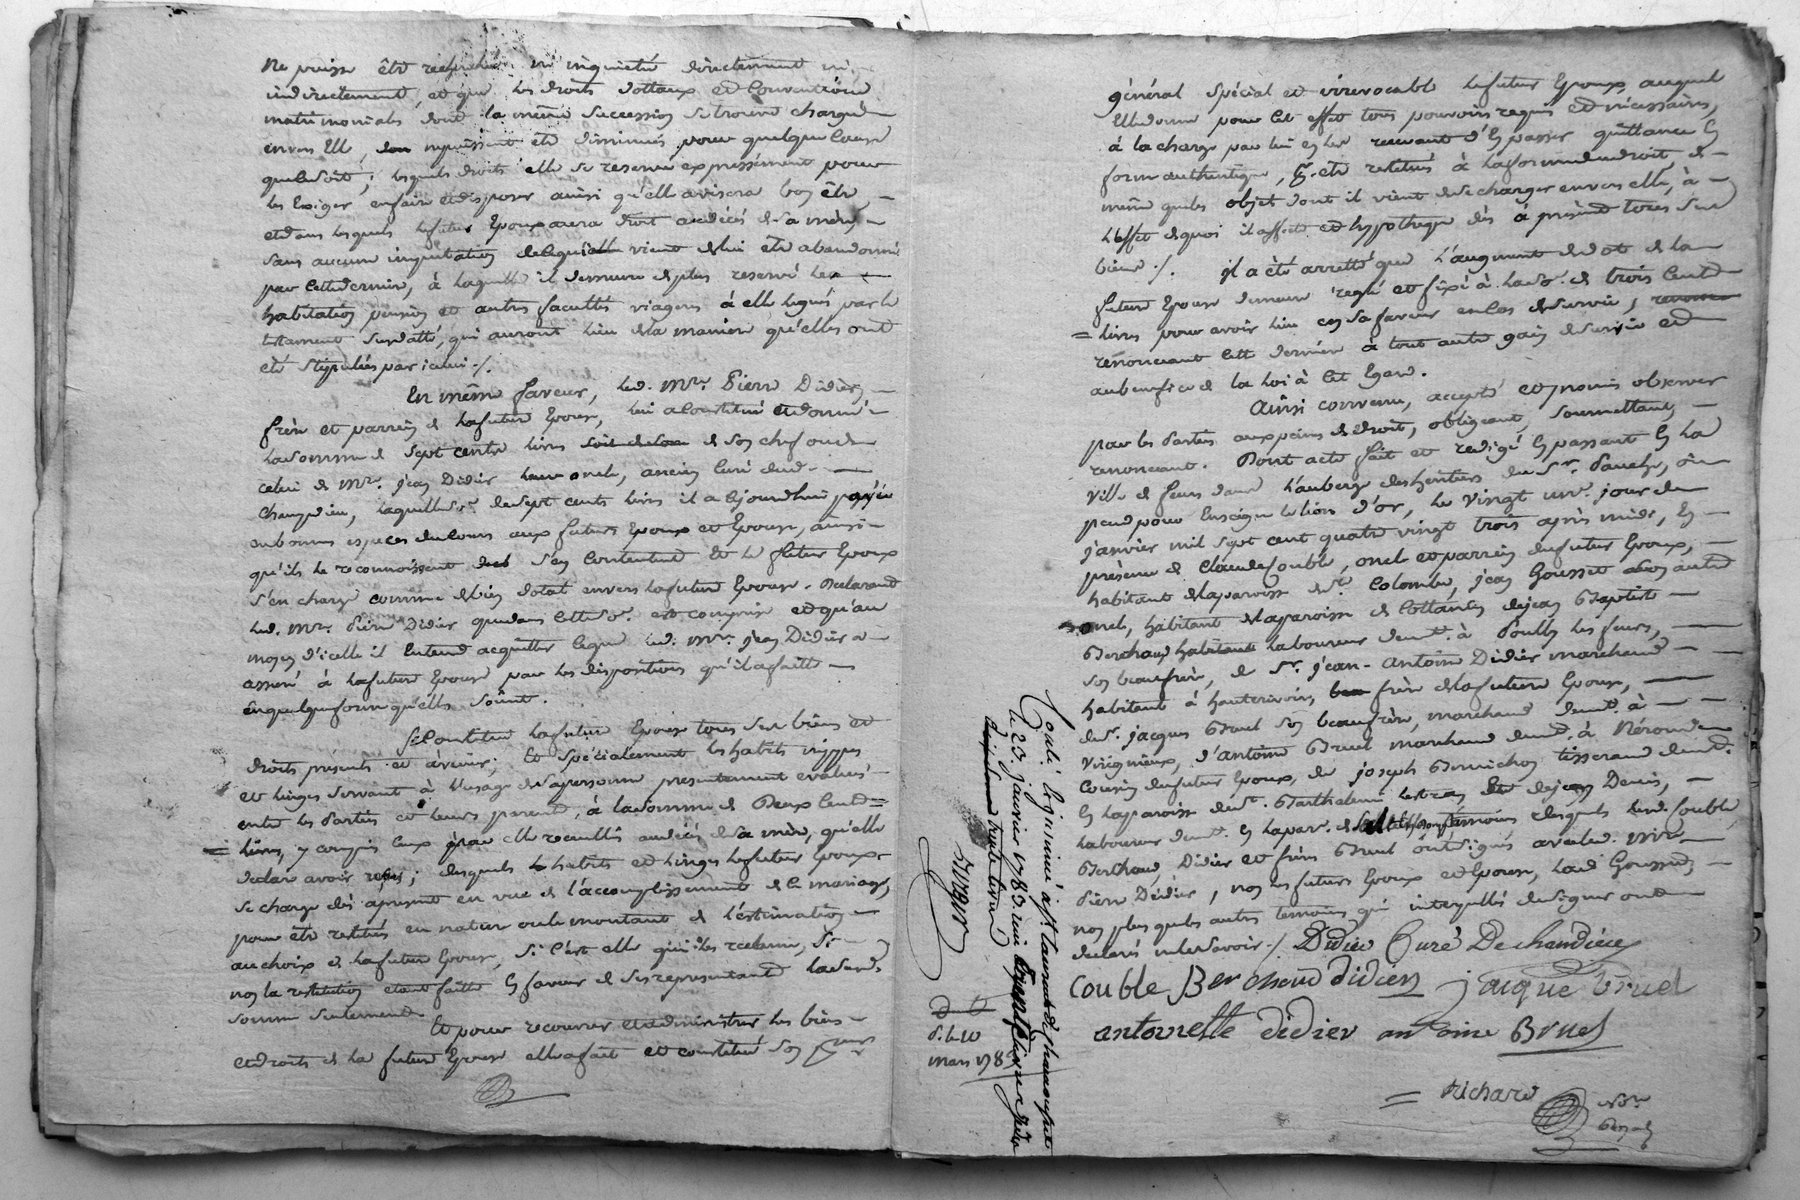 Ne puisse être recherché ni inquietté directement ni
indirectement, et que les droits dottaux et Conventions
matrimoniales dont la même succession se trouve chargée
envers Elle, ne puissent etre diminués pour quelque cause
que ce soit; lesquels droits elle se reserve expressément pour
les Exiger en faire et disposer ainsi qu'elle avisera bon être,
et dans lesquels le futur Epoux aura droit au décés de sa mère,
sans aucune imputation de ce qui vient de lui etre abandonné
par cette derniere, à laquelle il demeure de plus reservé les
habitation pension et autres facultés viageres à elle legués par le
testament susdatté, qui auront lieu de la maniere qu'elles ont
eté stipulées par icelui ./.
En même faveur, led. Mre. Pierre Didier,
frère et parrein de la future Epouse, lui a constitué et donné
la somme de sept cents livres de son chef ou de
celui de Mre. jean Didier oncle, ancien Curé dud.
Champdieu, laquelle se. de sept cents livres il a cejourdhui payée
en bonnes especes du cours aux futurs Epoux et Epouse, ainsi
qu'ils le reconnoissent s'en contentent Et le futur Epoux
s'en charge comme de bien dotal envers la future Epouse. Declarant
led. Mre. Pierre Didier que dans cette se. est comprise et qu'au
moyen d'icelle il Entend acquitter ce que led. Mre. jean Didier a
assuré à la future Epouse par les dispositions qu'il a faitte
en quelque forme qu'elles soient.
Se Constitue la future Epouse tous ses biens et
droits présents et à venir; Et spécialement les habits nippes
et linges servant à l'usage de sa personne presentement evalués
entre les Parties et leurs parents, à la somme de Deux Cents
livres, y compris ceux que elle recueillis au décés de sa mère, qu'elle
declare avoir reçus; desquels habits et linges le futur Epoux
se charge dès apresent en vue de l'accomplissement de ce mariage,
pour être restitués en nature ou le montant de l'estimation
au choix de la future Epouse, si c'est elle qui les reclame, Si
non la restitution etant faitte En faveur de ses representants lad.
somme seulement.
Et pour recouvrer et administrer les biens
et droits de la future Epouse elle a fait et constitué son
général spécial et irrevocable le futur Epoux, auquel
Elle donne pour cet effet tous pouvoirs requis et nécessaires,
à la charge par lui en les recevant d'En passer quittance En
forme authentique, etre restitués à la forme du droit, de
même que les objets dont il vient de se charger envers elle, à
L'effet de quoi il affecte et hypotheque dès à présent tous ses
biens ./. il a été arretté que L'augment de dot de la
future Epouse demeure reglé et fixé à la se. de trois Cents
livres pour avoir lieu en sa faveur en cas de survie,
renonceant cette derniere à tout autre gain de survie et
au benefice de la Loi à cet Egard.
Ainsi convenu, accepté et promis observer
par les Parties aux peines de droit, obligeant, soumettant,
renonceant. Dont acte fait et redigé En passant En la
ville de feurs dans L'auberge des heritiers du Sr.
pend pour Enseigne le Lion d'or, le Vingt un. jour de
janvier mil sept cent quatre vingt trois après midi, En
présence de Claude Couble, oncle et parrein du futur Epoux,
habitant de la paroisse de Ste. Colombe, jean Gousset autre
oncle, habitant de la paroisse de Cottance, de jean Baptiste
Berchoud laboureur demt. à Poully les feurs,
son beaufrère, de Sr. jean-antoine Didier marchand
habitant à hauterivoire, frère de la future Epouse,
de Sr. jacques Bruel son beaufrère, marchand demt. à
Virigneux, d'antoine Bruel marchand demt. à Néronde
Cousin du futur Epoux, de joseph tisserand demt.
En la paroisse de St. Barthelemi Lestra et de jean Denis,
laboureur demt. En la par. de témoins desquels led. Couble,
Berchoud Didier et frères Bruel ont signés avec led. Mre
Pierre Didier, non les futurs Epoux et Epouse, led. Gousset,
non plus que les autres temoins qui interpellés de signer ont
declaré ne le savoir ./. Didier Curé De chandieu
couble Berchoud didier jaque bruel
antoinette didier antoine Bruel
Richard
Controlé et insinué à St. laurent de Chamousset
le 23. janvier 1783. reçu
trente livres
D. le 10
mars 178